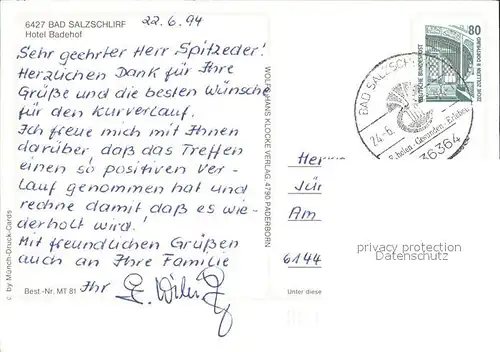 6427 BAD SALZSCHLIRF
Hotel Badehof
22.6.94
Sehr geehrter Herr Spitzeder!
Herzlichen Dank für Ihre
Grüße und die besten Wünsche
für den Kurverlauf.
Ich freue mich mit Ihnen
darüber daß das Treffen
einen so positiven Ver-
lauf genommen hat und
rechne damit daß es wie-
derholt wird!
Mit freundlichen Grüßen
auch an Ihre Familie
Ihr
Best.-Nr. MT 81
© by Münch-Druck-Cards
WOLFGANG HANS KLOCKE VERLAG, 4790 PADERBORN
80
DEUTSCHE BUNDESPOST
ZECHE ZOLLERN II DORTMUND
BAD SALZSCH
24.-6.
Erholen - Gesunden - Erleben
36364
Her
Jür
Am
6144
Unter diese
privacy protection
Datenschutz